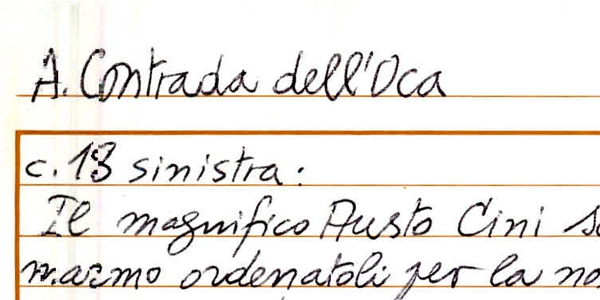 A. Contrada dell'Oca
c. 13 sinistra:
Il magnifico Austo Cini
marmo ordenatoli per la